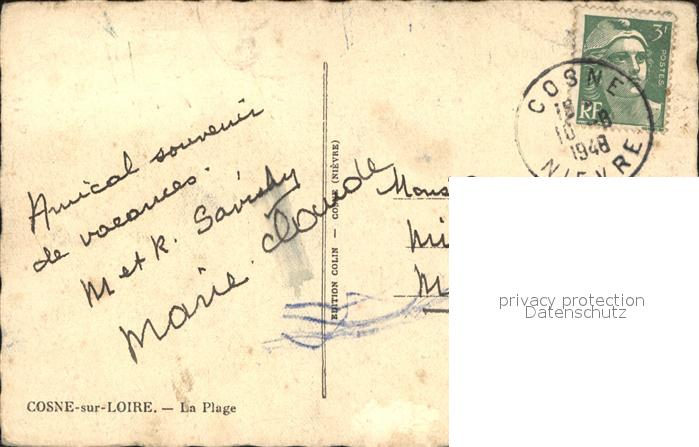 Amical souvenir
de vacances.
M et R. Savisky
Marie. Claude
COSNE-sur-LOIRE. — La Plage
EDITION COLIN — COSNE (NIÈVRE)
3F
POSTES
RF
COSNE
1948
NIEVRE
privacy protection
Datenschutz